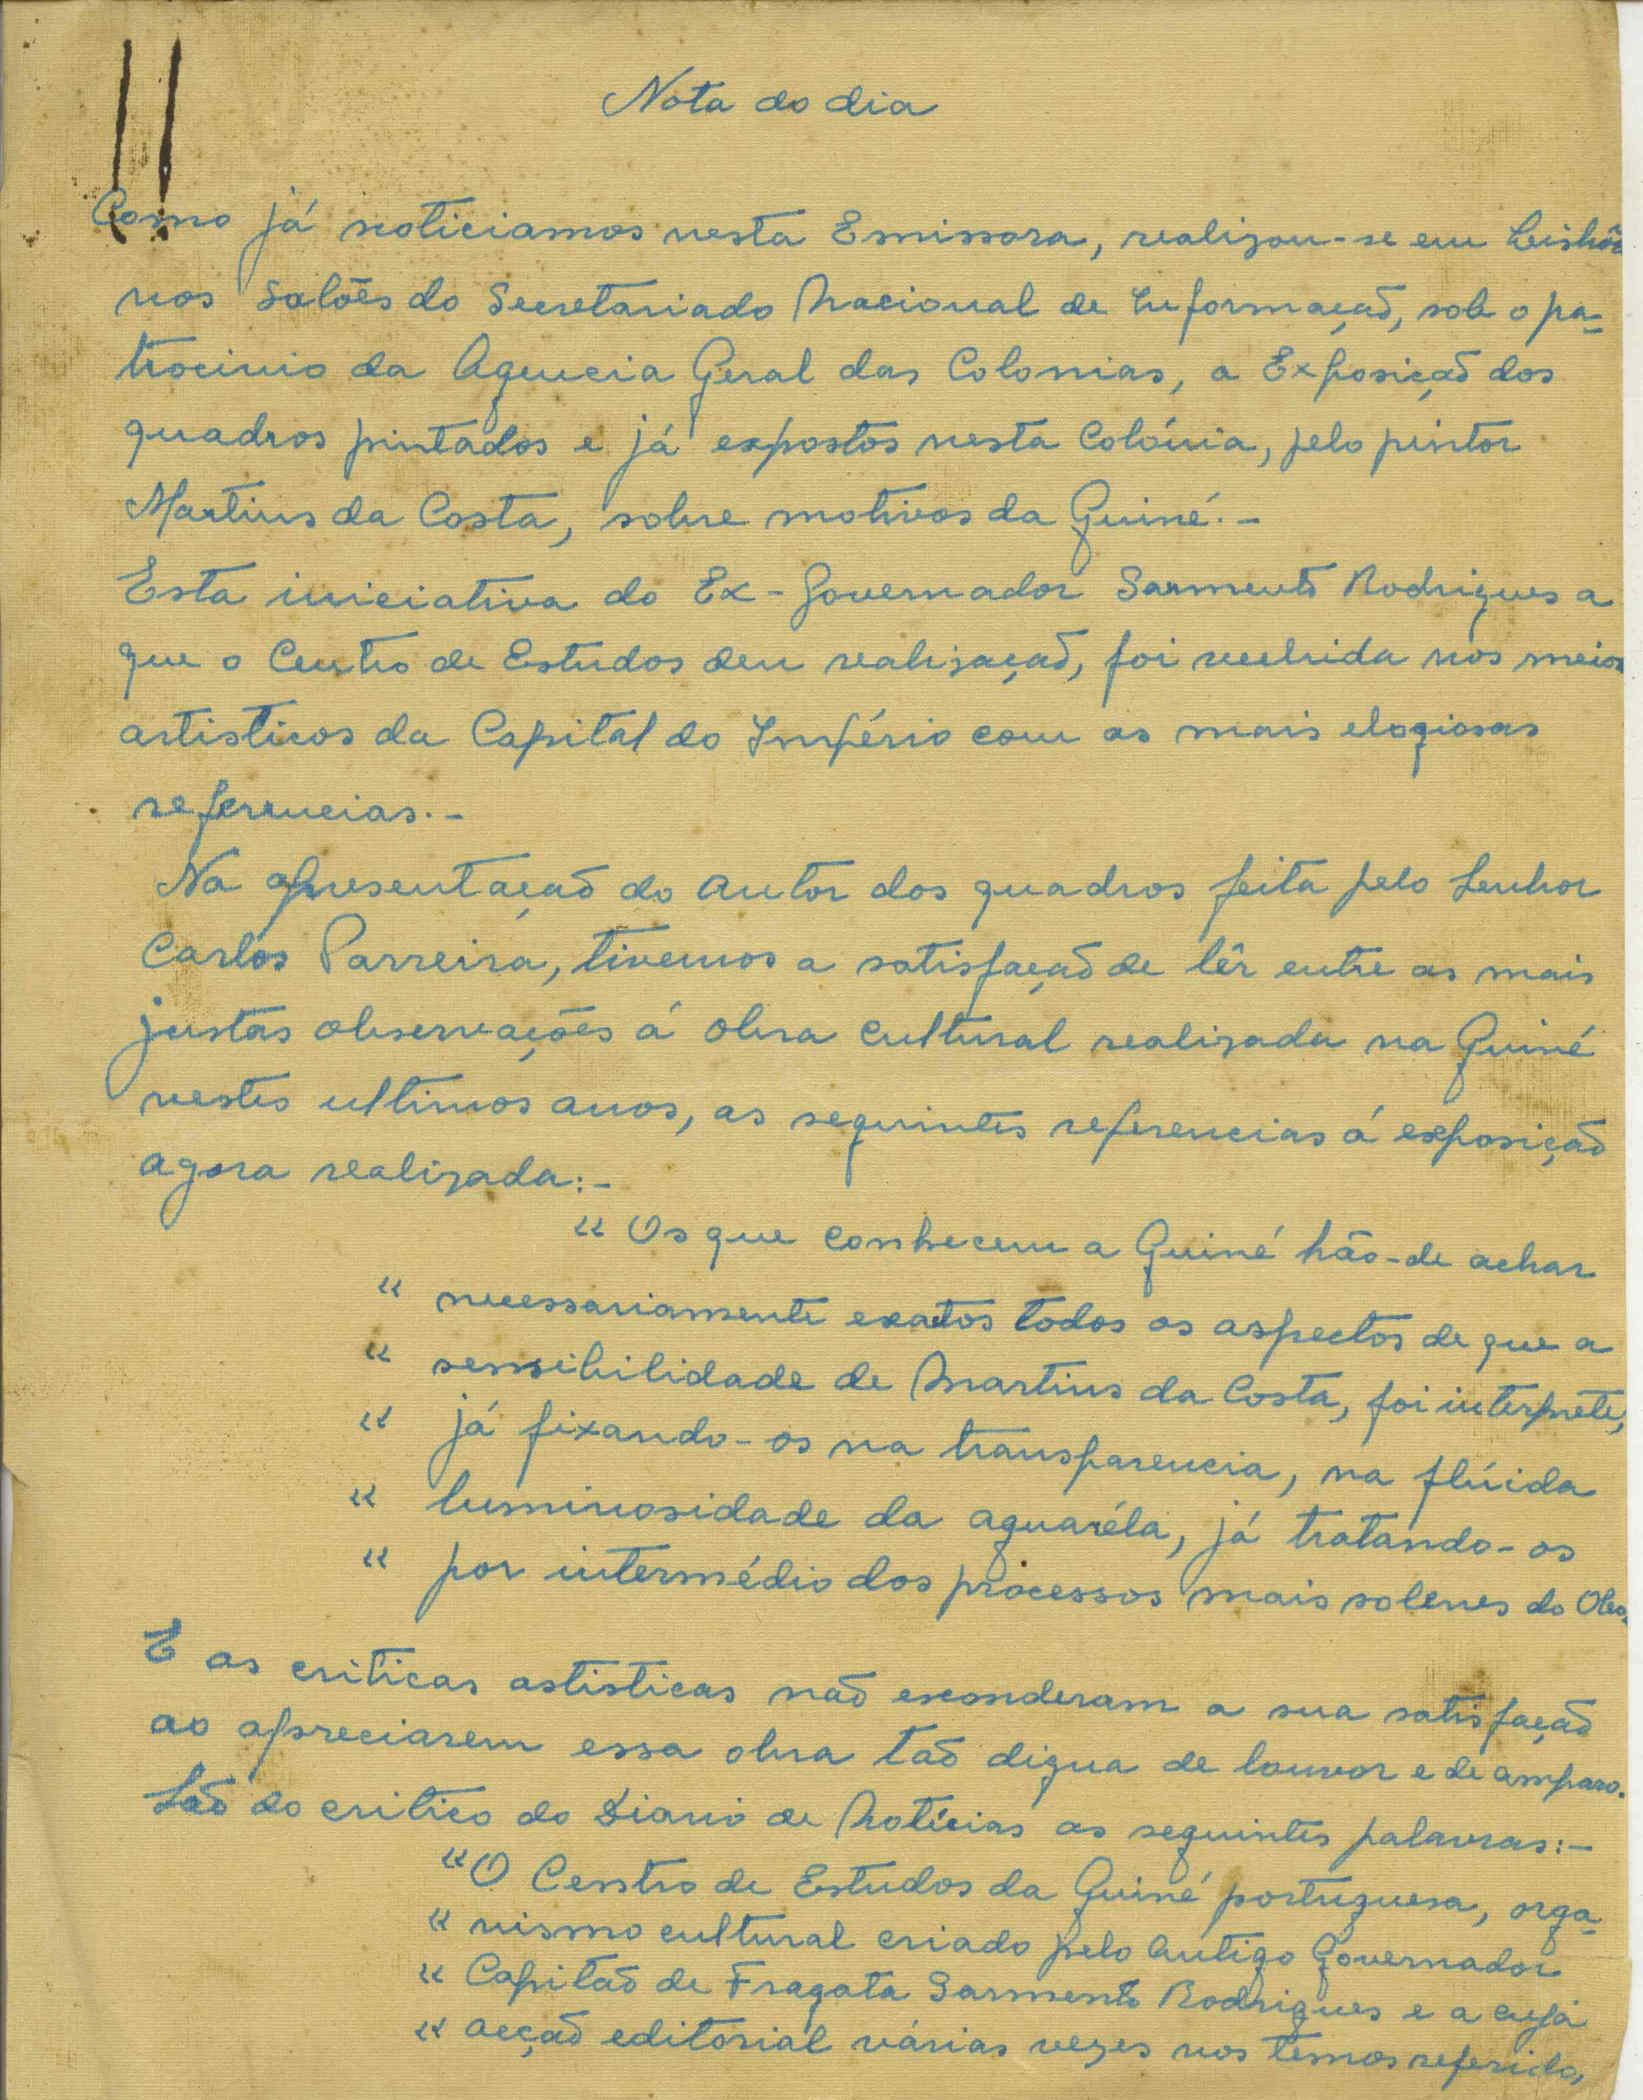 Nota do dia
Como já noticiamos nesta Emissora, realizou-se em Lisbôa
nos salões do Secretariado Nacional de Informação, sob o pa-
trocinio da Agencia Geral das Colonias, a Exposição dos
quadros pintados e já expostos nesta Colónia, pelo pintor
Martins da Costa, sobre motivos da Guiné.-
Esta iniciativa do Ex-Governador Sarmento Rodrigues a
que o Centro de Estudos deu realização, foi recebida nos meios
artisticos da Capital do Império com as mais elogiosas
referencias.-
Na apresentação do autor dos quadros feita pelo Senhor
Carlos Parreira, tivemos a satisfação de lêr entre as mais
justas observações á obra cultural realizada na Guiné
nestes ultimos anos, as seguintes referencias á exposição
agora realizada:-
"Os que conhecem a Guiné hão-de achar
" necessariamente exatos todos os aspectos de que a
" sensibilidade de Martins da Costa, foi interprete,
" já fixando-os na transparencia, na flúida
" luminosidade da aguaréla, já tratando-os
" por intermédio dos processos mais solenes do Oleo.
E as criticas artisticas não esconderam a sua satisfação
ao apreciarem essa obra tão digna de louvor e de amparo.
São do critico do Diario de Notícias as seguintes palavras:-
"O Centro de Estudos da Guiné portuguesa, orga-
" nismo cultural criado pelo antigo Governador
" Capitão de Fragata Sarmento Rodrigues e a cuja
" acção editorial várias vezes nos temos referido,